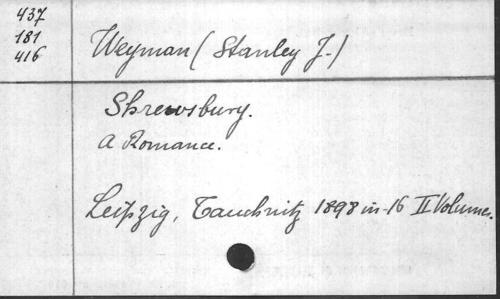 437
181
416
Weyman (Stanley J.)
Shrewsbury.
a Romance.
Leipzig, Tauchnitz 1898 in-16 II Volumes.